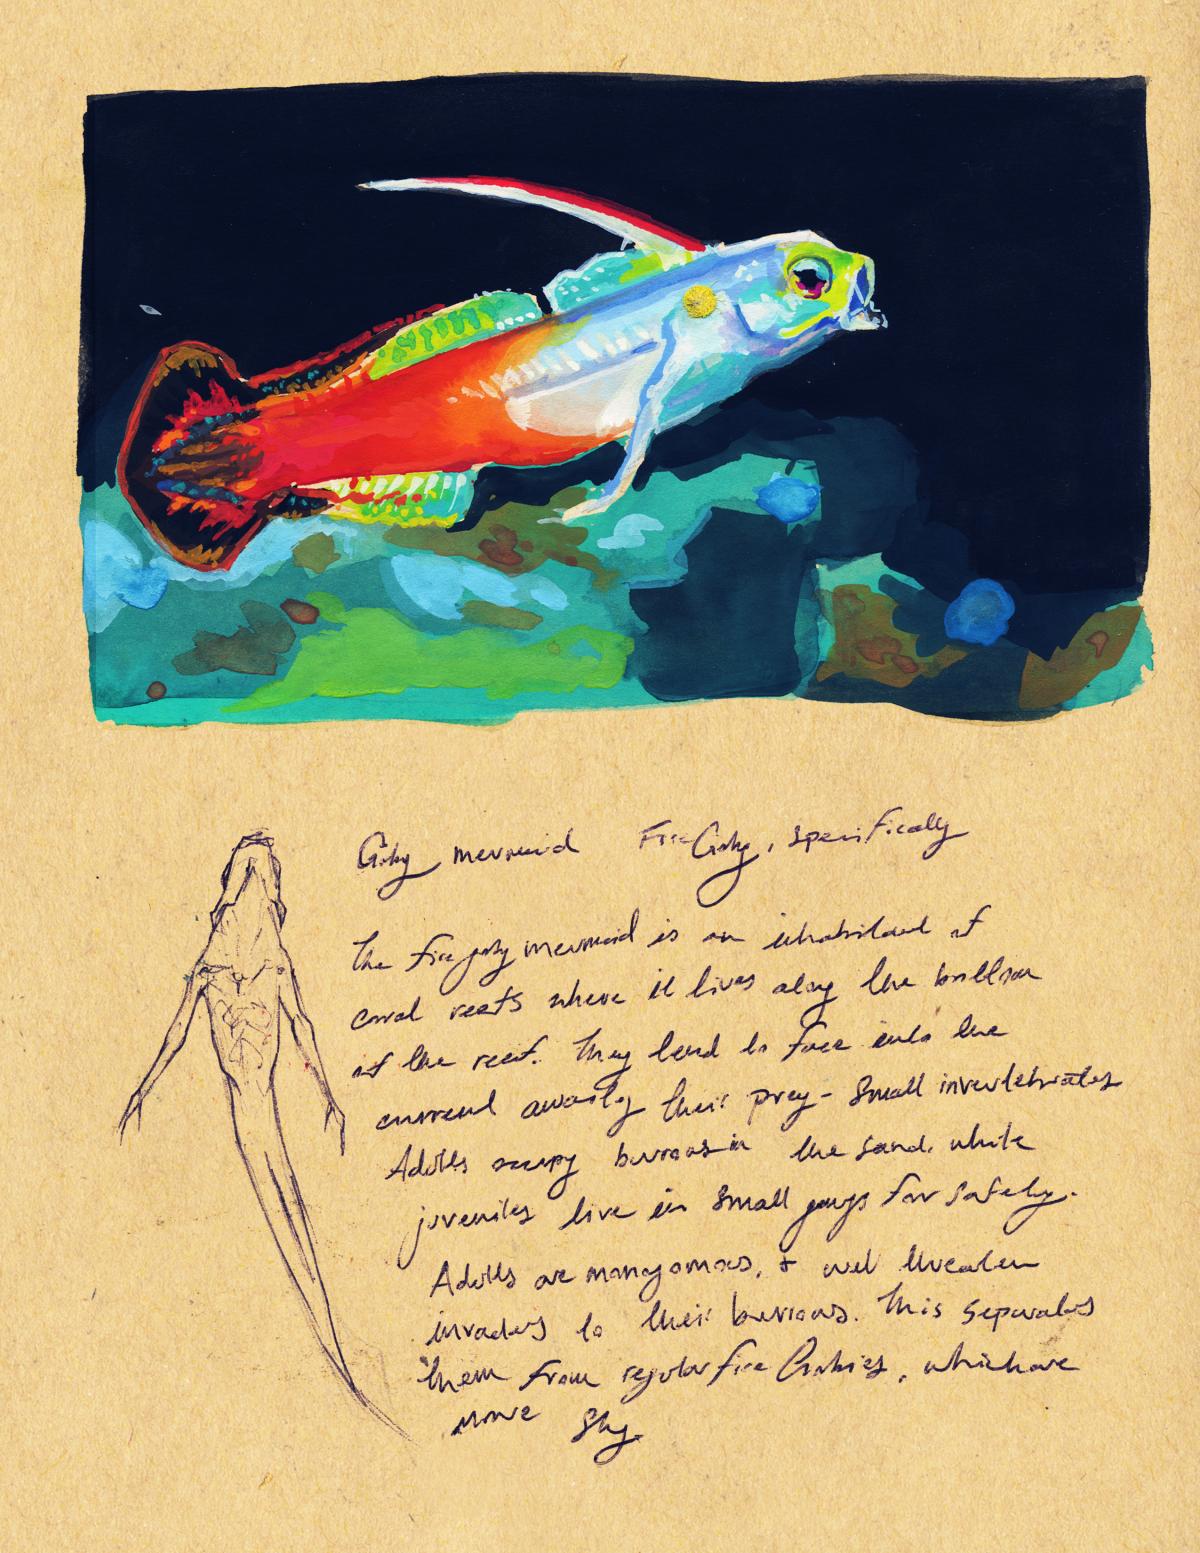 Goby mermaid Fire Goby, specifically
The fire goby mermaid is an inhabitant of
coral reefs where it lives along the bottom
of the reef. They tend to face into the
current awaiting their prey - small invertebrates
Adults occupy burrows in the sand, while
juveniles live in small gangs for safety.
Adults are monogamous, & will threaten
invaders to their burrows. This separates
them from regular fire Gobies, which are
more shy.